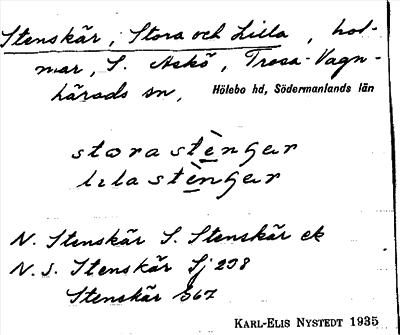 Stenskär, Stora och Lilla, hol-
mar, S. Askö, Trosa-Vagn-
härads sn, Hölebo hd, Södermanlands län
stora stèngar
lila stèngar
N. Stenskär S. Stenskär ek
N. S. Stenskär Sj 238
Stenskär 867
KARL-ELIS NYSTEDT 1935